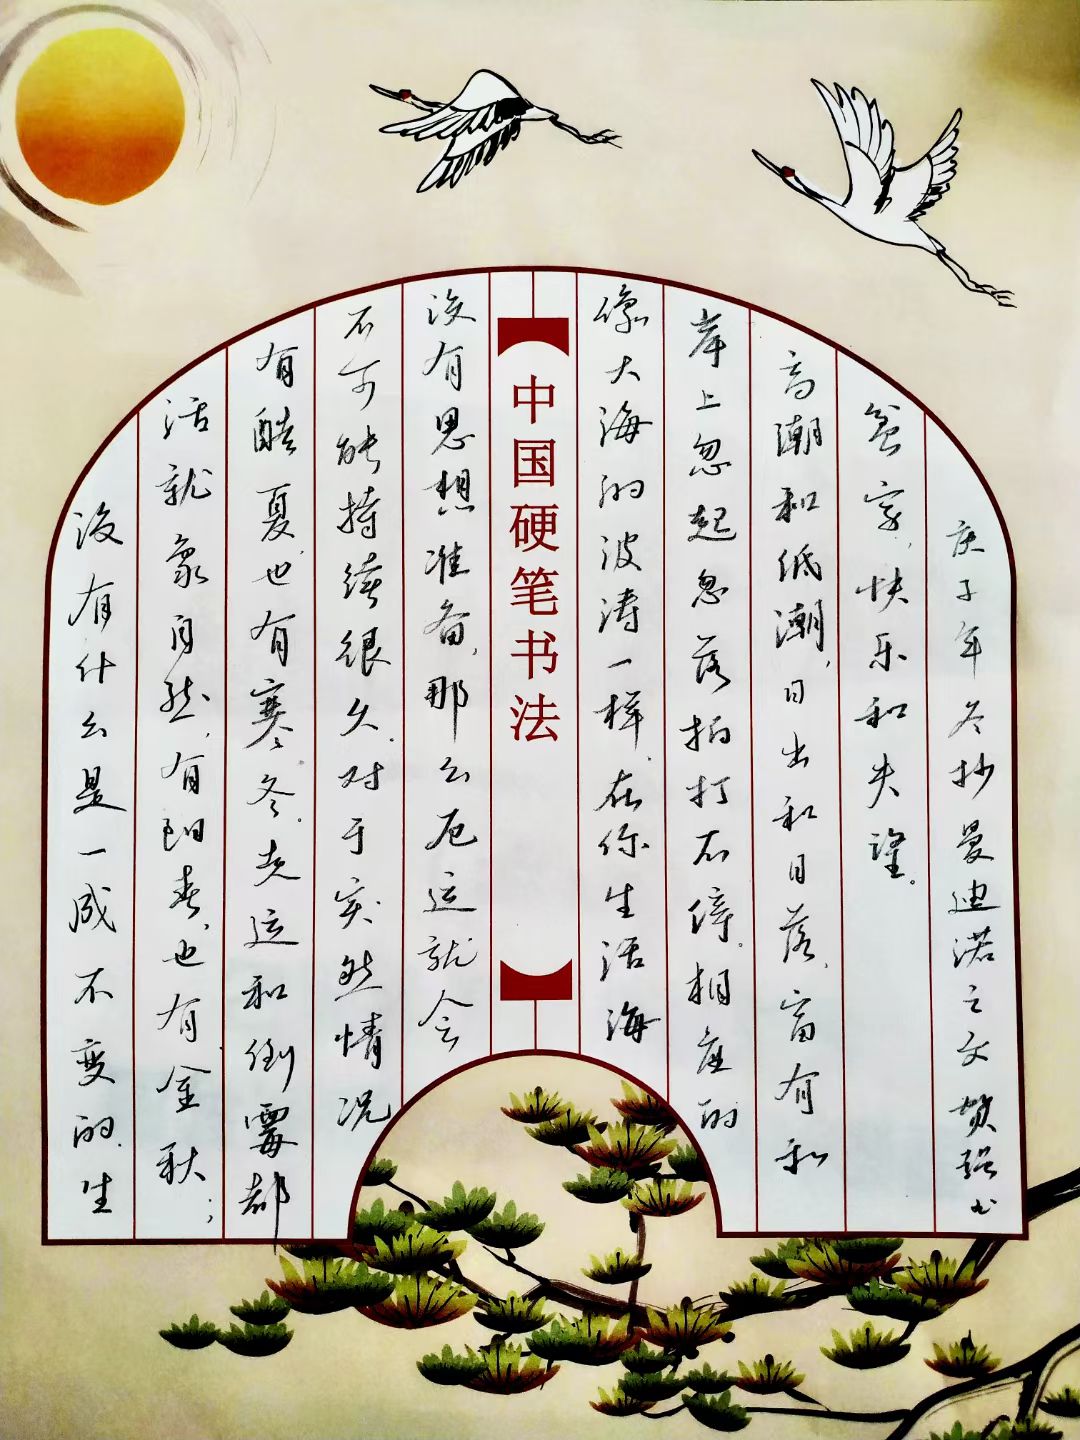 没有什么是一成不变的,生
活就象自然,有阳春,也有金秋;
有酷夏,也有寒冬。走运和倒霉都
不可能持续很久。对于突然情况
没有思想准备,那么厄运就会
中国硬笔书法
像大海的波涛一样,在你生活海
岸上忽起忽落拍打不停。相应的
高潮和低潮,日出和日落,富有和
贫穷,快乐和失望。
庚子年冬抄曼迪诺之文 贺强书